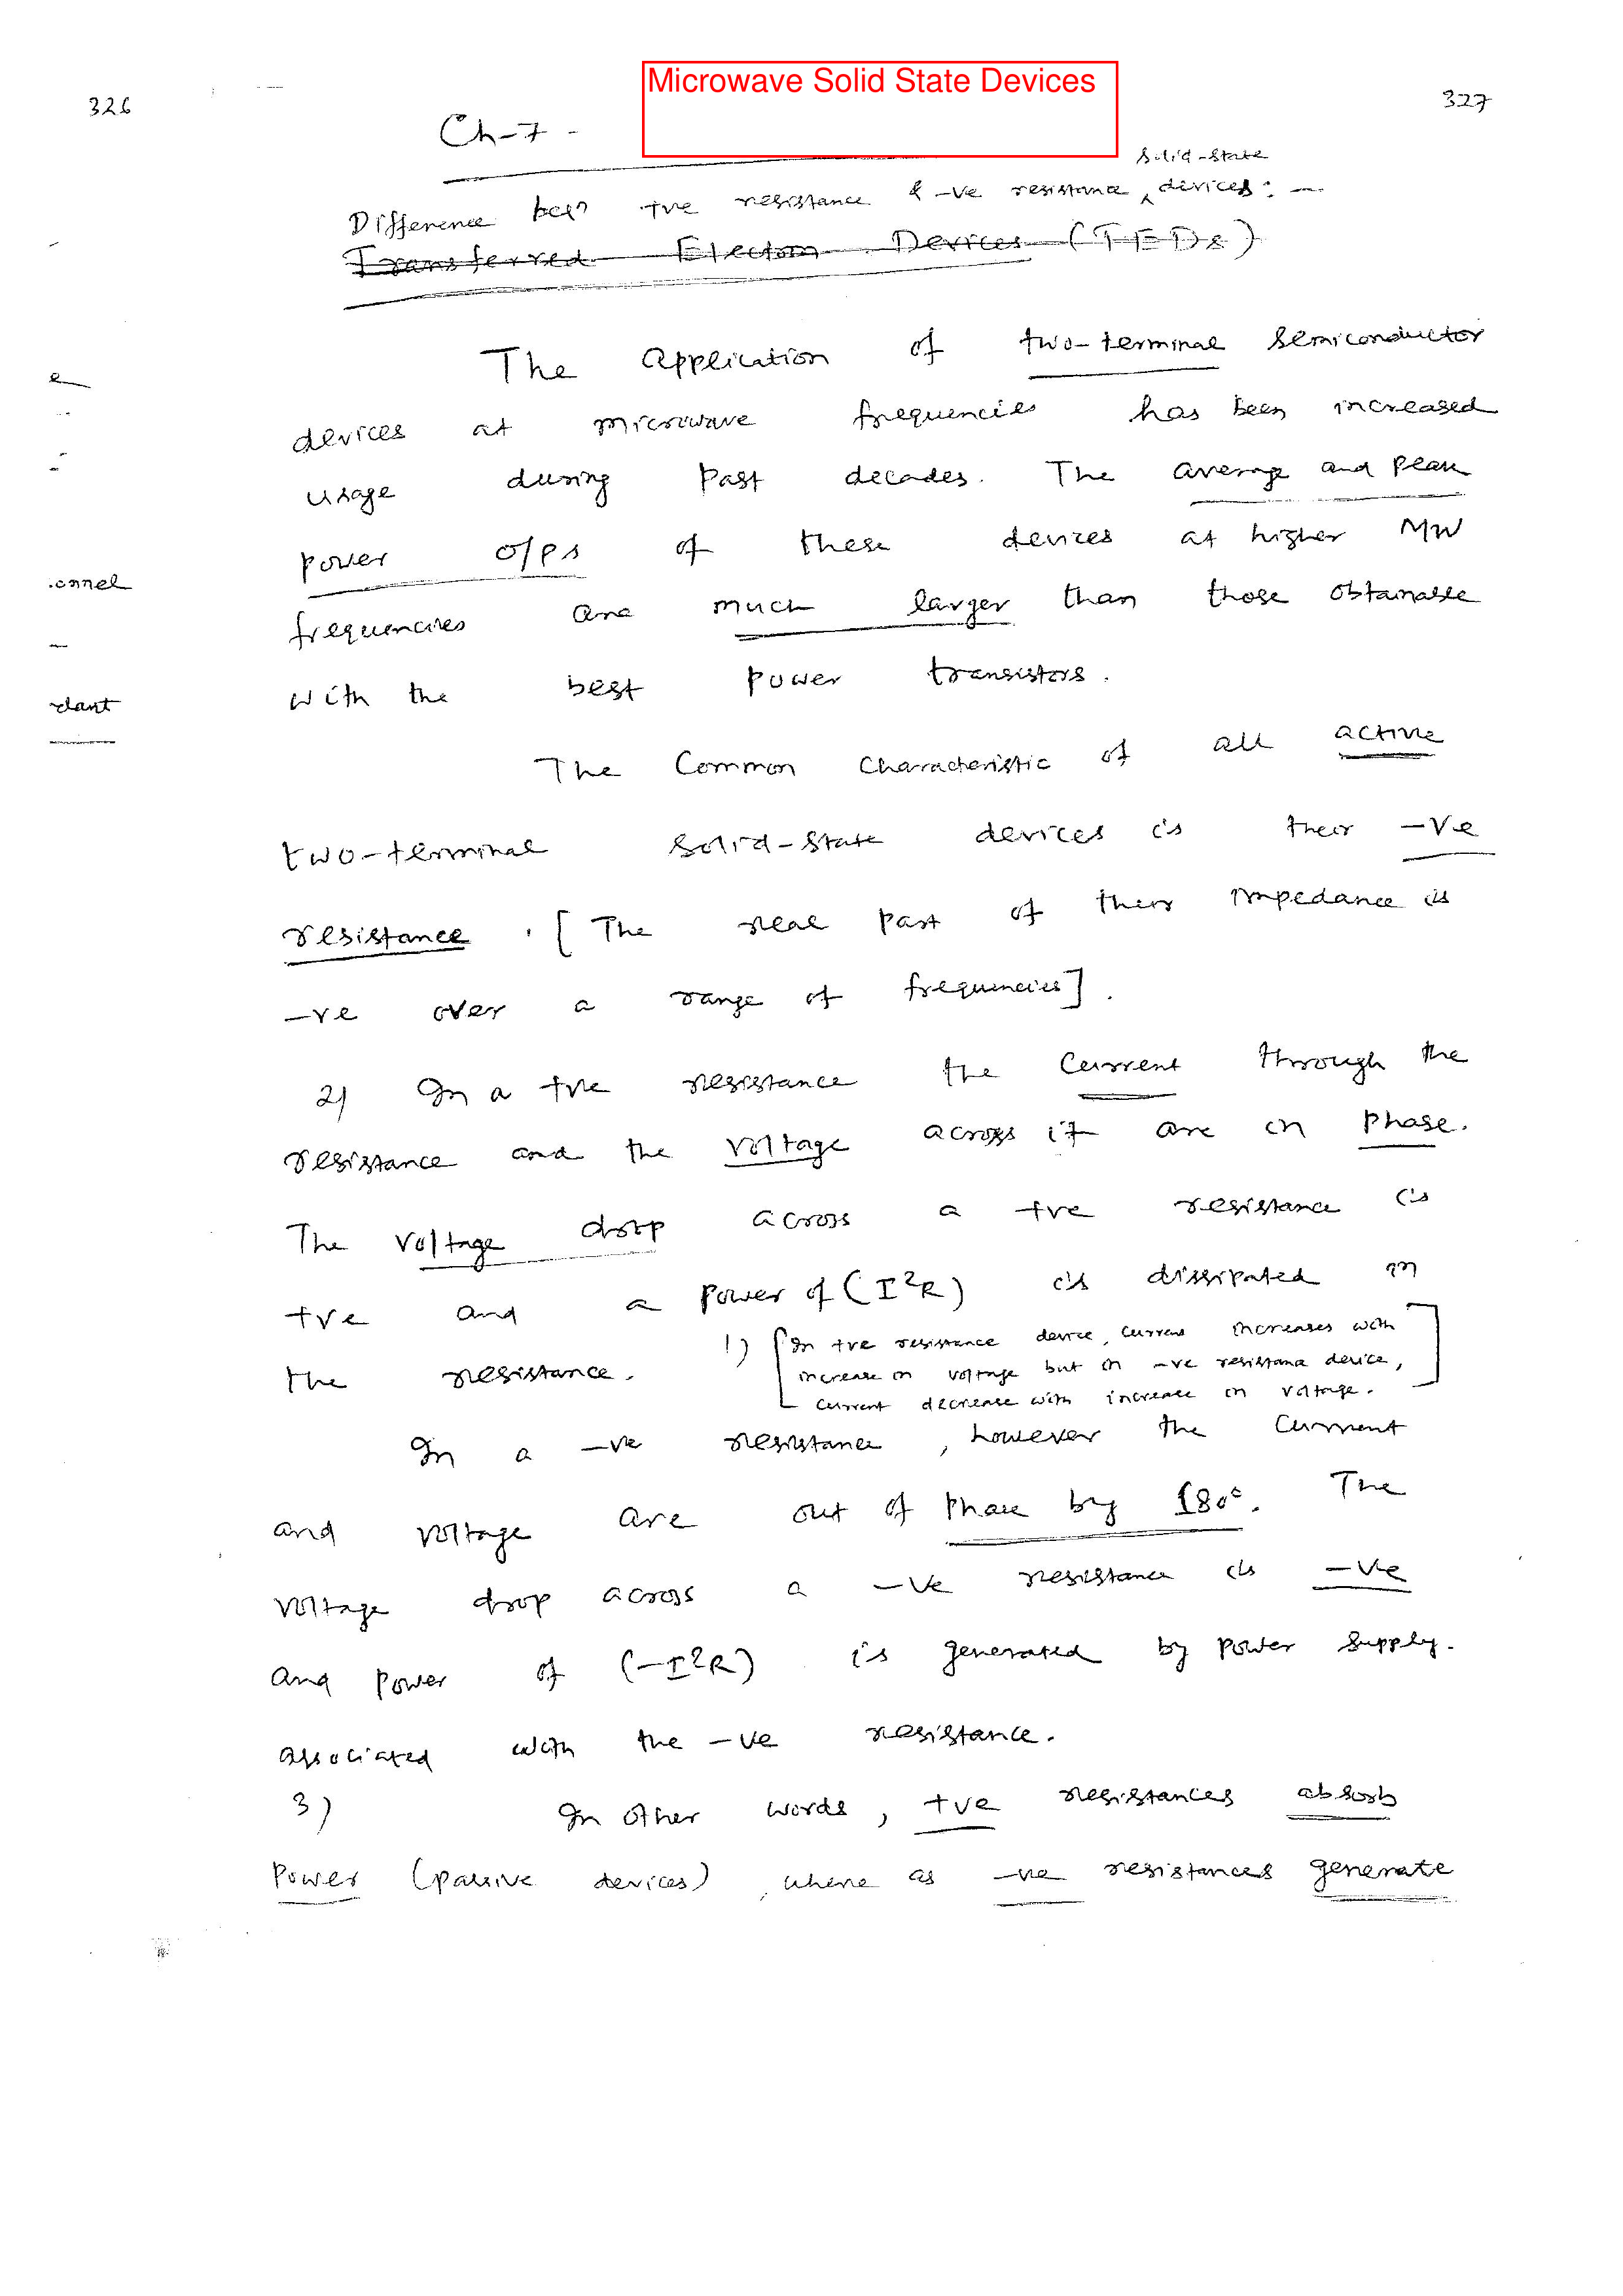 Microwave Solid State Devices
326
327
Ch-7 -
Solid-State
Difference betn +ve resistance & -ve resistance devices: -
Transferred Electon Devices (TEDs)
The Application of two-terminal Semiconductor
devices at microwave frequencies has been increased
usage during past decades. The average and peak
power o/ps of these devices at higher MW
frequencies are much larger than those obtainable
with the best power transistors.
The Common Characteristic of all active
two-terminal Solid-State devices is their -ve
resistance. [The real part of their impedance is
-ve over a range of frequencies].
2) In a +ve resistance the Current through the
resistance and the voltage across it are in phase.
The voltage drop across a +ve resistance is
+ve and a power of (I²R) is dissipated in
the resistance.
1) [In +ve resistance device, current increases with
increase in voltage but in -ve resistance device,
current decrease with increase in voltage.]
In a -ve resistance, however the Current
and voltage are out of phase by 180°. The
voltage drop across a -ve resistance is -ve
and power of (-I²R) is generated by power supply.
associated with the -ve resistance.
3) In other words, +ve resistances absorb
power (passive devices), where as -ve resistances generate
onnel
dant